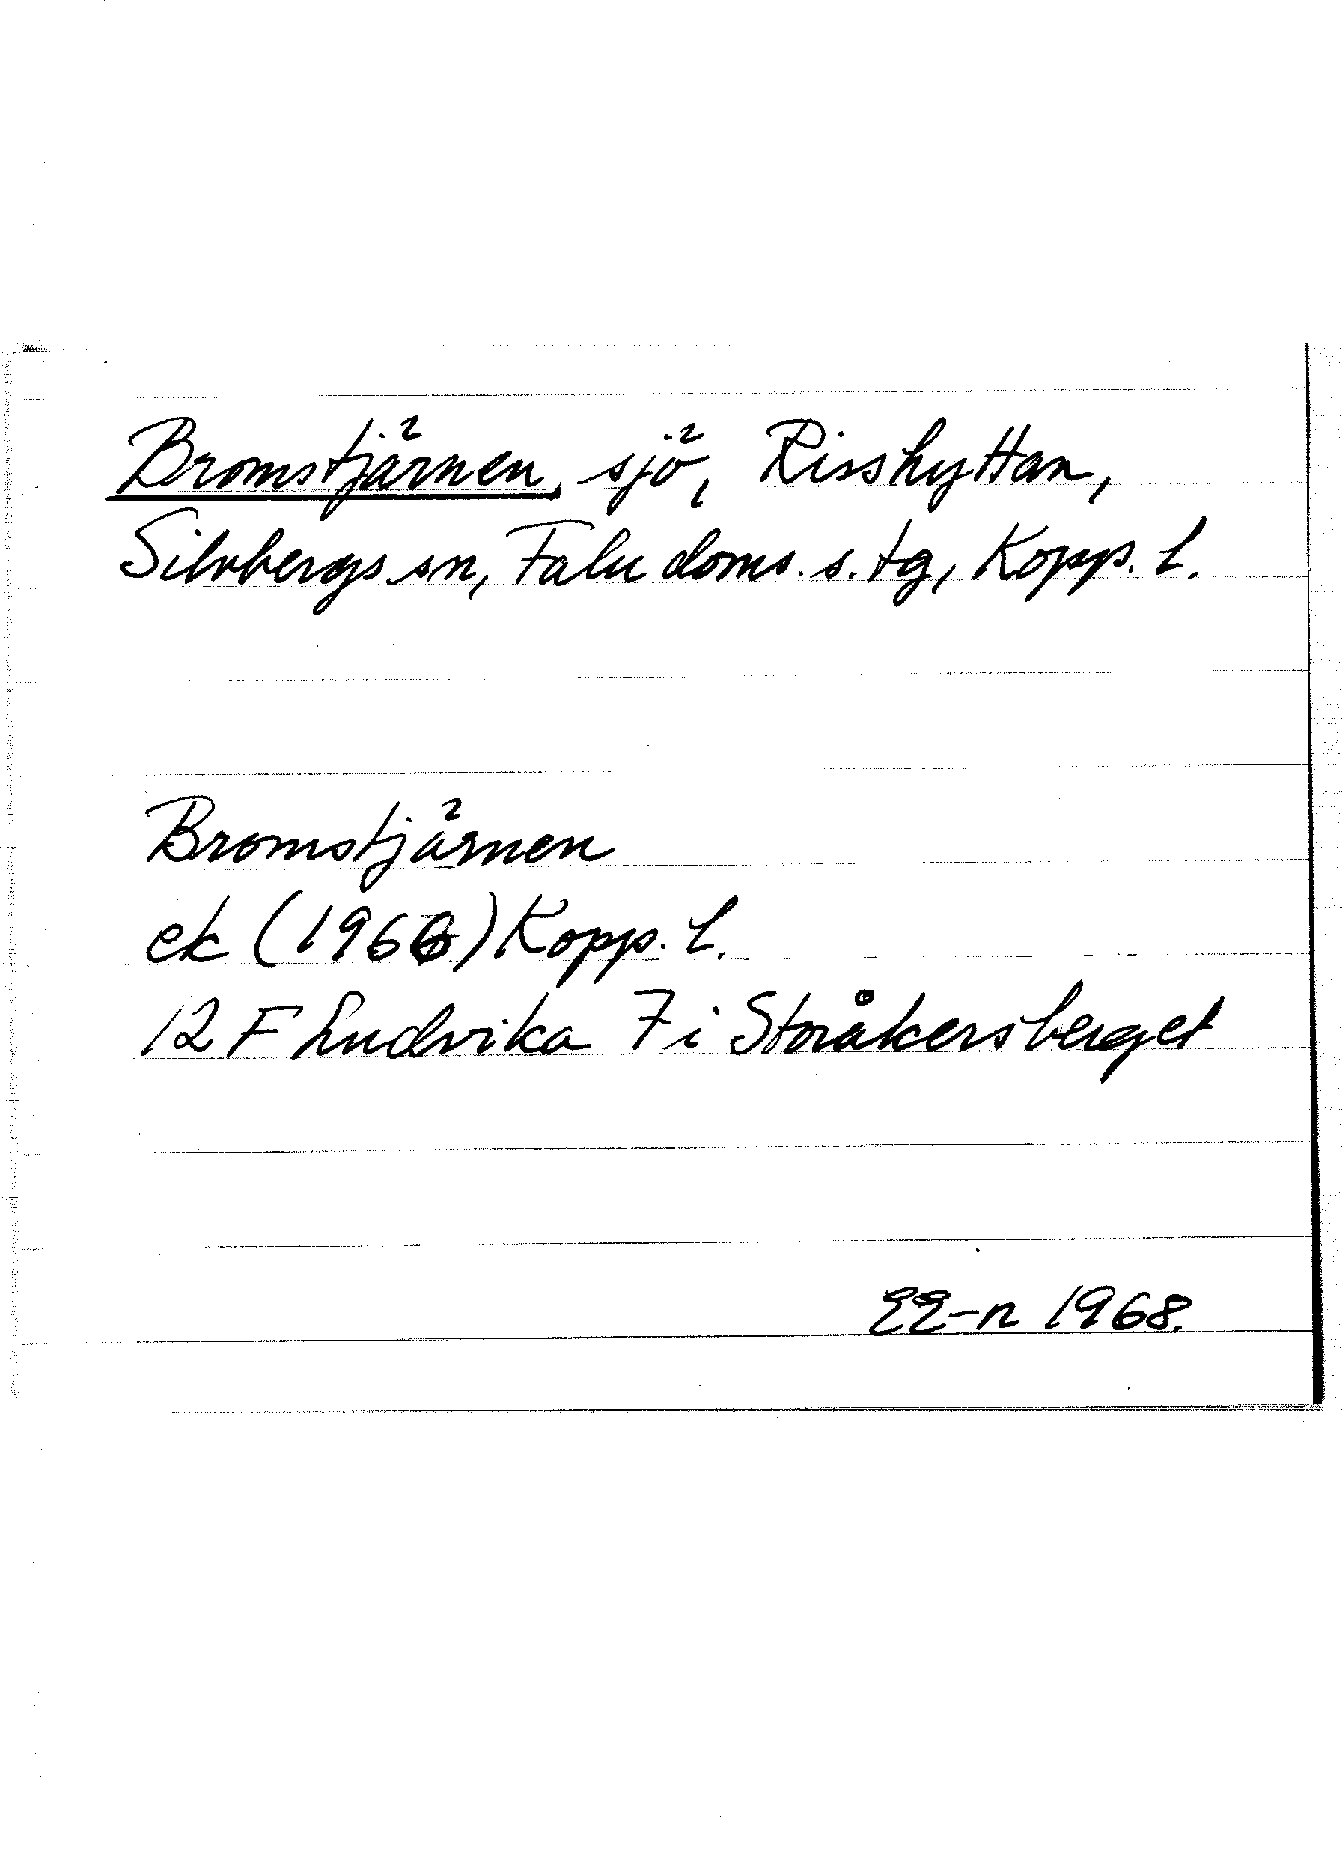 Bromstjärnen, sjö, Risshyttan,
Silvbergs sn, Falu doms. s. tg, Kopp. l.
Bromstjärnen
ek (1966) Kopp. l.
12 F Ludvika 7 i Storåkersberget
EE-n 1968.